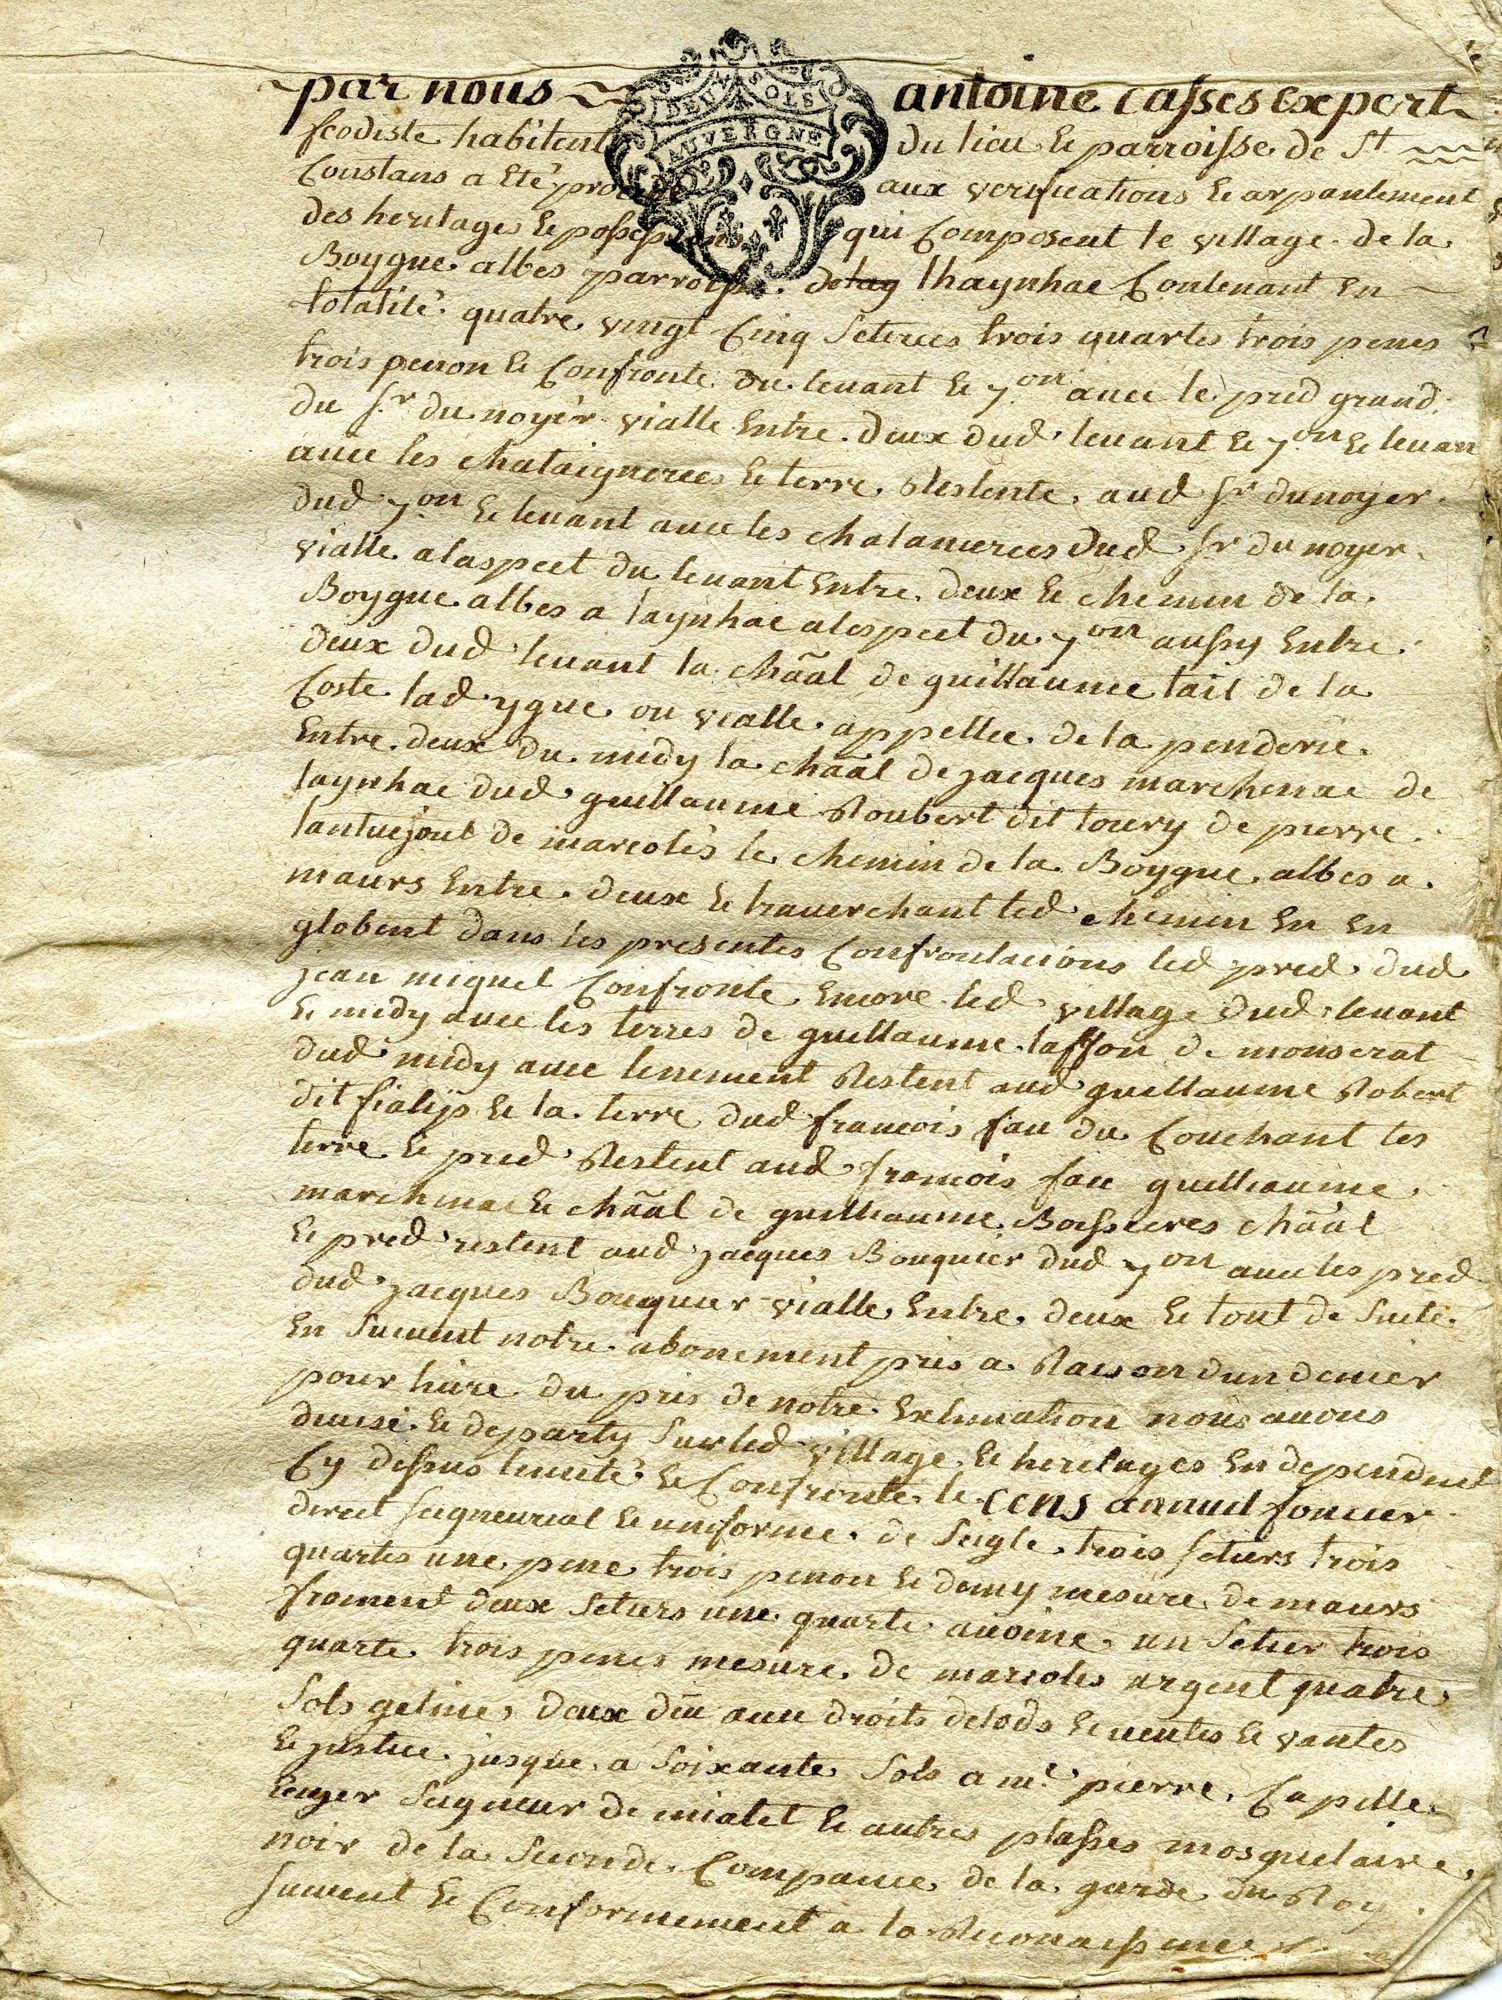 par nous antoine Casses Expert
DEUX SOLS
AUVERGNE
feodiste habitent du lieu et parroisse de St
Constans a été procede aux verifications et arpantement
des heritages et possessions qui Composent le village de la
Boygue albes parroisse de lay lhaynhac Contenant En
totalité quatre vingt Cinq Seterees trois quartes trois penes
trois penon et Confronte du levant et 7.on avec le pred grand
du Sr. du noyer vialle Entre deux dud levant et 7.on et levan
avec les chataignerees et terre Restente aud Sr dunoyer
dud 7.on et levant avec les chatanierees dud Sr du noyer
vialle alaspect du levant Entre deux et chemin de la
Boygue albes a laynhac alespect du 7on aussy Entre
deux dud levant la chãal de guillaume lait de la
Coste lad ygue ou vialle appellee de la penderie
Entre deux du midy la chãal de jacques marchenac de
laynhac dud guillaume Roubert dit loury de pierre
lantuejoul de marcolès le chemin de la Boygue albes a
maurs Entre deux et traverchant led chemin En En
globent dans les presentes Confrontacions led pred dud
jean miquel Confronte Encore led village dud levant
et midy avec les terres de guillaume laffon de monserat
dud midy avec tenement Restent aud guillaume Robert
dit fialip et la terre dud francois fau du Couchant les
terre et pred Restent aud francois fau guilhaume
marchenac et chãal de guilhaume Boissieres chãal
et pred restent aud jacques Bouquier dud 7on avec les pred
dud jacques Bouquier vialle Entre deux et tout de Suite
En Suivent notre abonement pris a Raison dun denier
pour livre du pris de notre Extimation nous avons
divisé et departy Sur led village et heritages En dependent
Cy dessus limité et Confronte le Cens annuel foncier
direct seigneurial et uniforme de Seigle trois setiers trois
quartes une pene trois penon et demy mesure de maurs
froment deux Setiers une quarte avoine un Setier trois
quarte trois penes mesure de marcoles argent quatre
Sols geline deux diu avec droits delods et ventes et vantes
et justice jusque a Soixante Sols a mr. pierre Capelle
Seigneur de mialet et autres plasses mosquetaire
noir de la Seconde Companie de la garde du Roy
suivent et Conformement a la Reconaissance